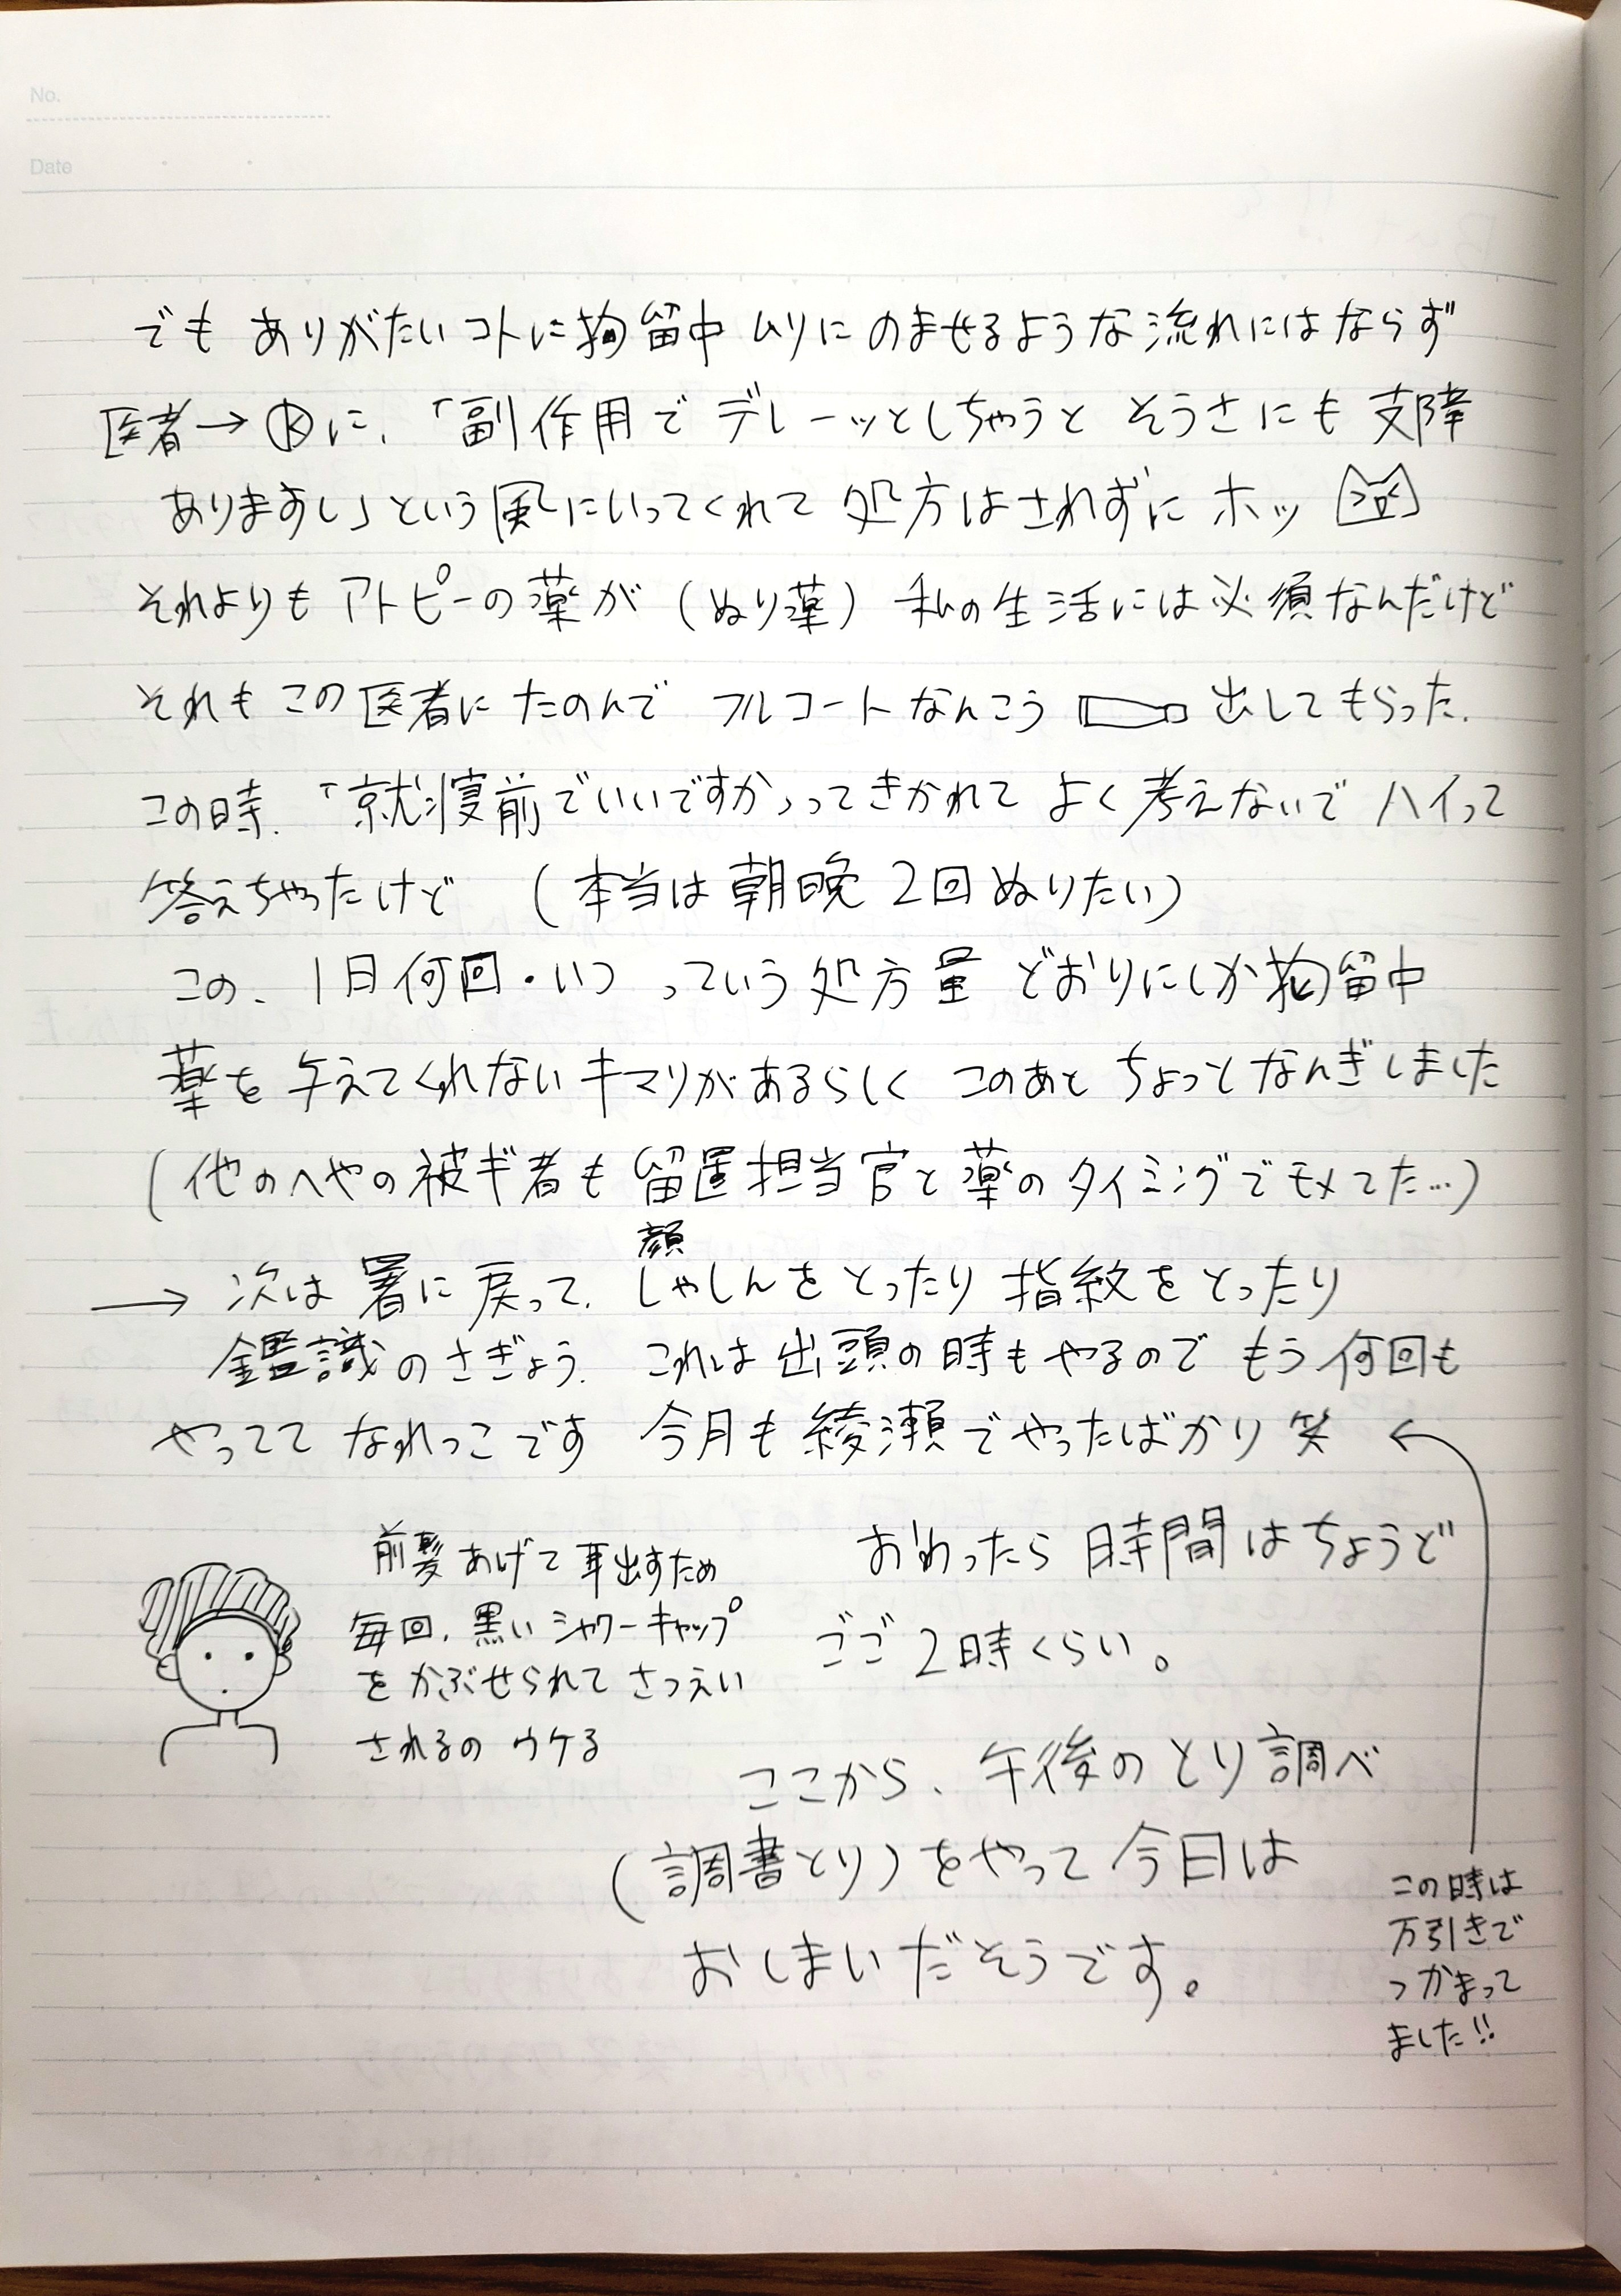 No.
Date
でも ありがたいコトに拘留中 ムリに のませるような流れにはならず
医者→Ⓚに、「副作用で デレーッとしちゃうと そうさにも 支障
ありますし」という風にいってくれて 処方はされずに ホッ
それよりも アトピーの薬が (ぬり薬) 私の生活には必須なんだけど
それも この医者に たのんで フルコートなんこう 出してもらった.
この時、「就寝前でいいですか」ってきかれて よく考えないで ハイって
答えちゃったけど (本当は朝晩 2回ぬりたい)
この、1日何回・いつ っていう処方量 どおりにしか拘留中
薬を 与えてくれないキマリがあるらしく このあと ちょっとなんぎしました
(他のへやの被ギ者も 留置担当官と薬のタイミングでモメてた…)
→ 次は 署に戻って、顔しゃしんをとったり 指紋をとったり
鑑識のさぎょう. これは出頭の時もやるので もう何回も
やってて なれっこです 今月も綾瀬でやったばかり 笑 ←
前髪あげて耳出すため
毎回、黒いシャワーキャップ
をかぶせられて さつえい
されるの ウケる
おわったら 時間はちょうど
ごご 2時くらい。
ここから、午後のとり調べ
(調書とり)をやって 今日は
おしまいだそうです。
この時は
万引きで
つかまって
ました!!